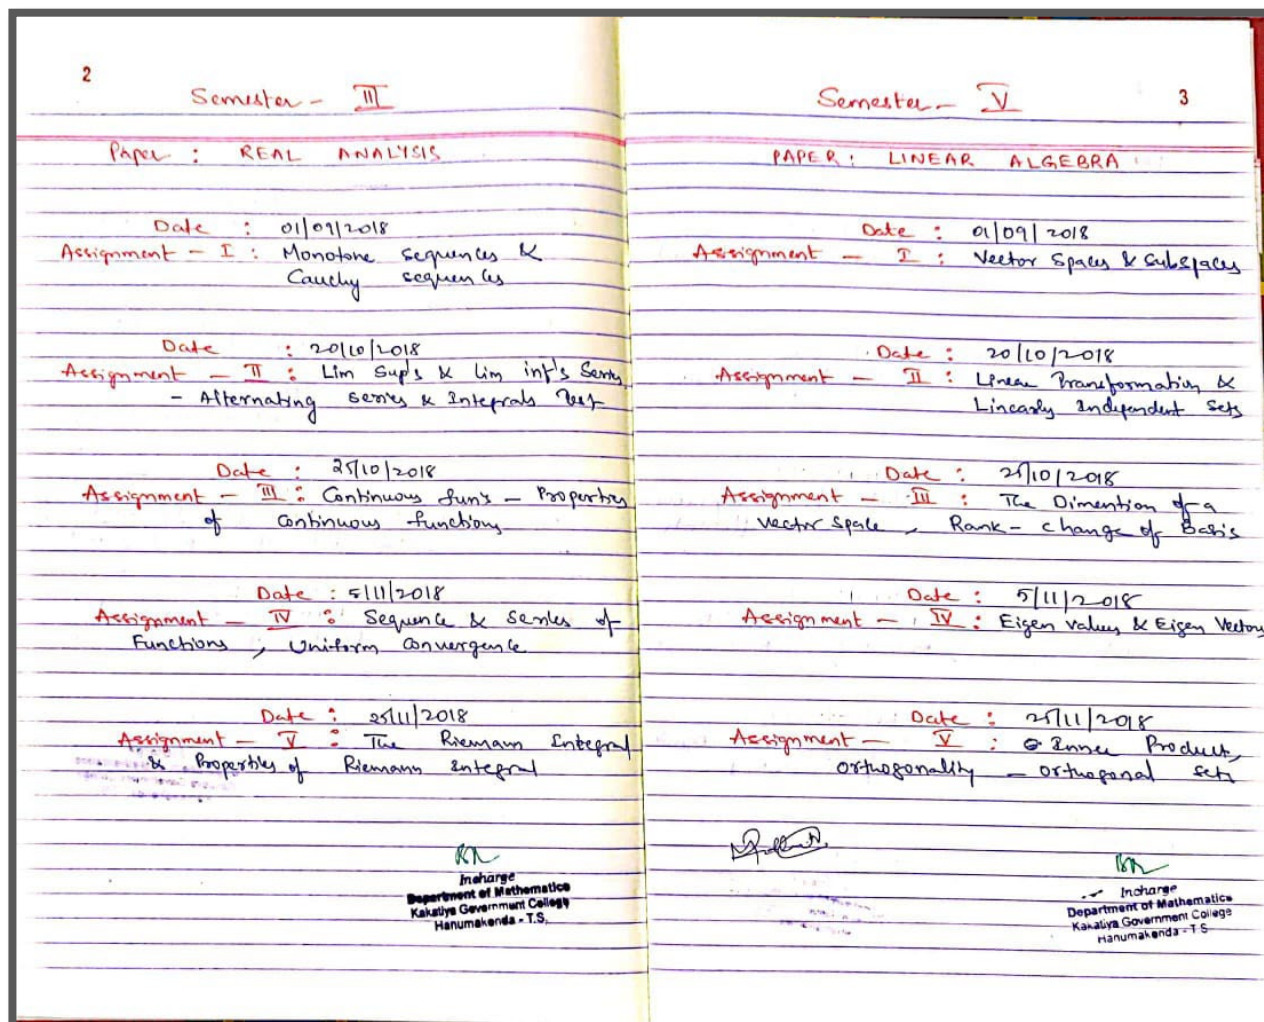 2
Semester - III
Paper : REAL ANALYSIS
Date : 01/09/2018
Assignment - I : Monotone sequences &
Cauchy sequences
Date : 20/10/2018
Assignment - II : Lim Sup's & Lim inf's Series
- Alternating series & Integrals Test
Date : 25/10/2018
Assignment - III : Continuous fun's - Properties
of continuous functions
Date : 5/11/2018
Assignment - IV : Sequence & series of
Functions , Uniform convergence
Date : 25/11/2018
Assignment - V : The Riemann Integral
& Properties of Riemann integral
Incharge
Department of Mathematics
Kakatiya Government College
Hanumakonda - T.S.
3
Semester - V
PAPER : LINEAR ALGEBRA
Date : 01/09/2018
Assignment - I : Vector Spaces & Subspaces
Date : 20/10/2018
Assignment - II : Linear Transformation &
Linearly Independent Sets
Date : 25/10/2018
Assignment - III : The Dimention of a
Vector Space , Rank - change of Basis
Date : 5/11/2018
Assignment - IV : Eigen values & Eigen Vectors
Date : 25/11/2018
Assignment - V : Inner Product,
orthogonality - orthogonal sets
Incharge
Department of Mathematics
Kakatiya Government College
Hanumakonda - T S